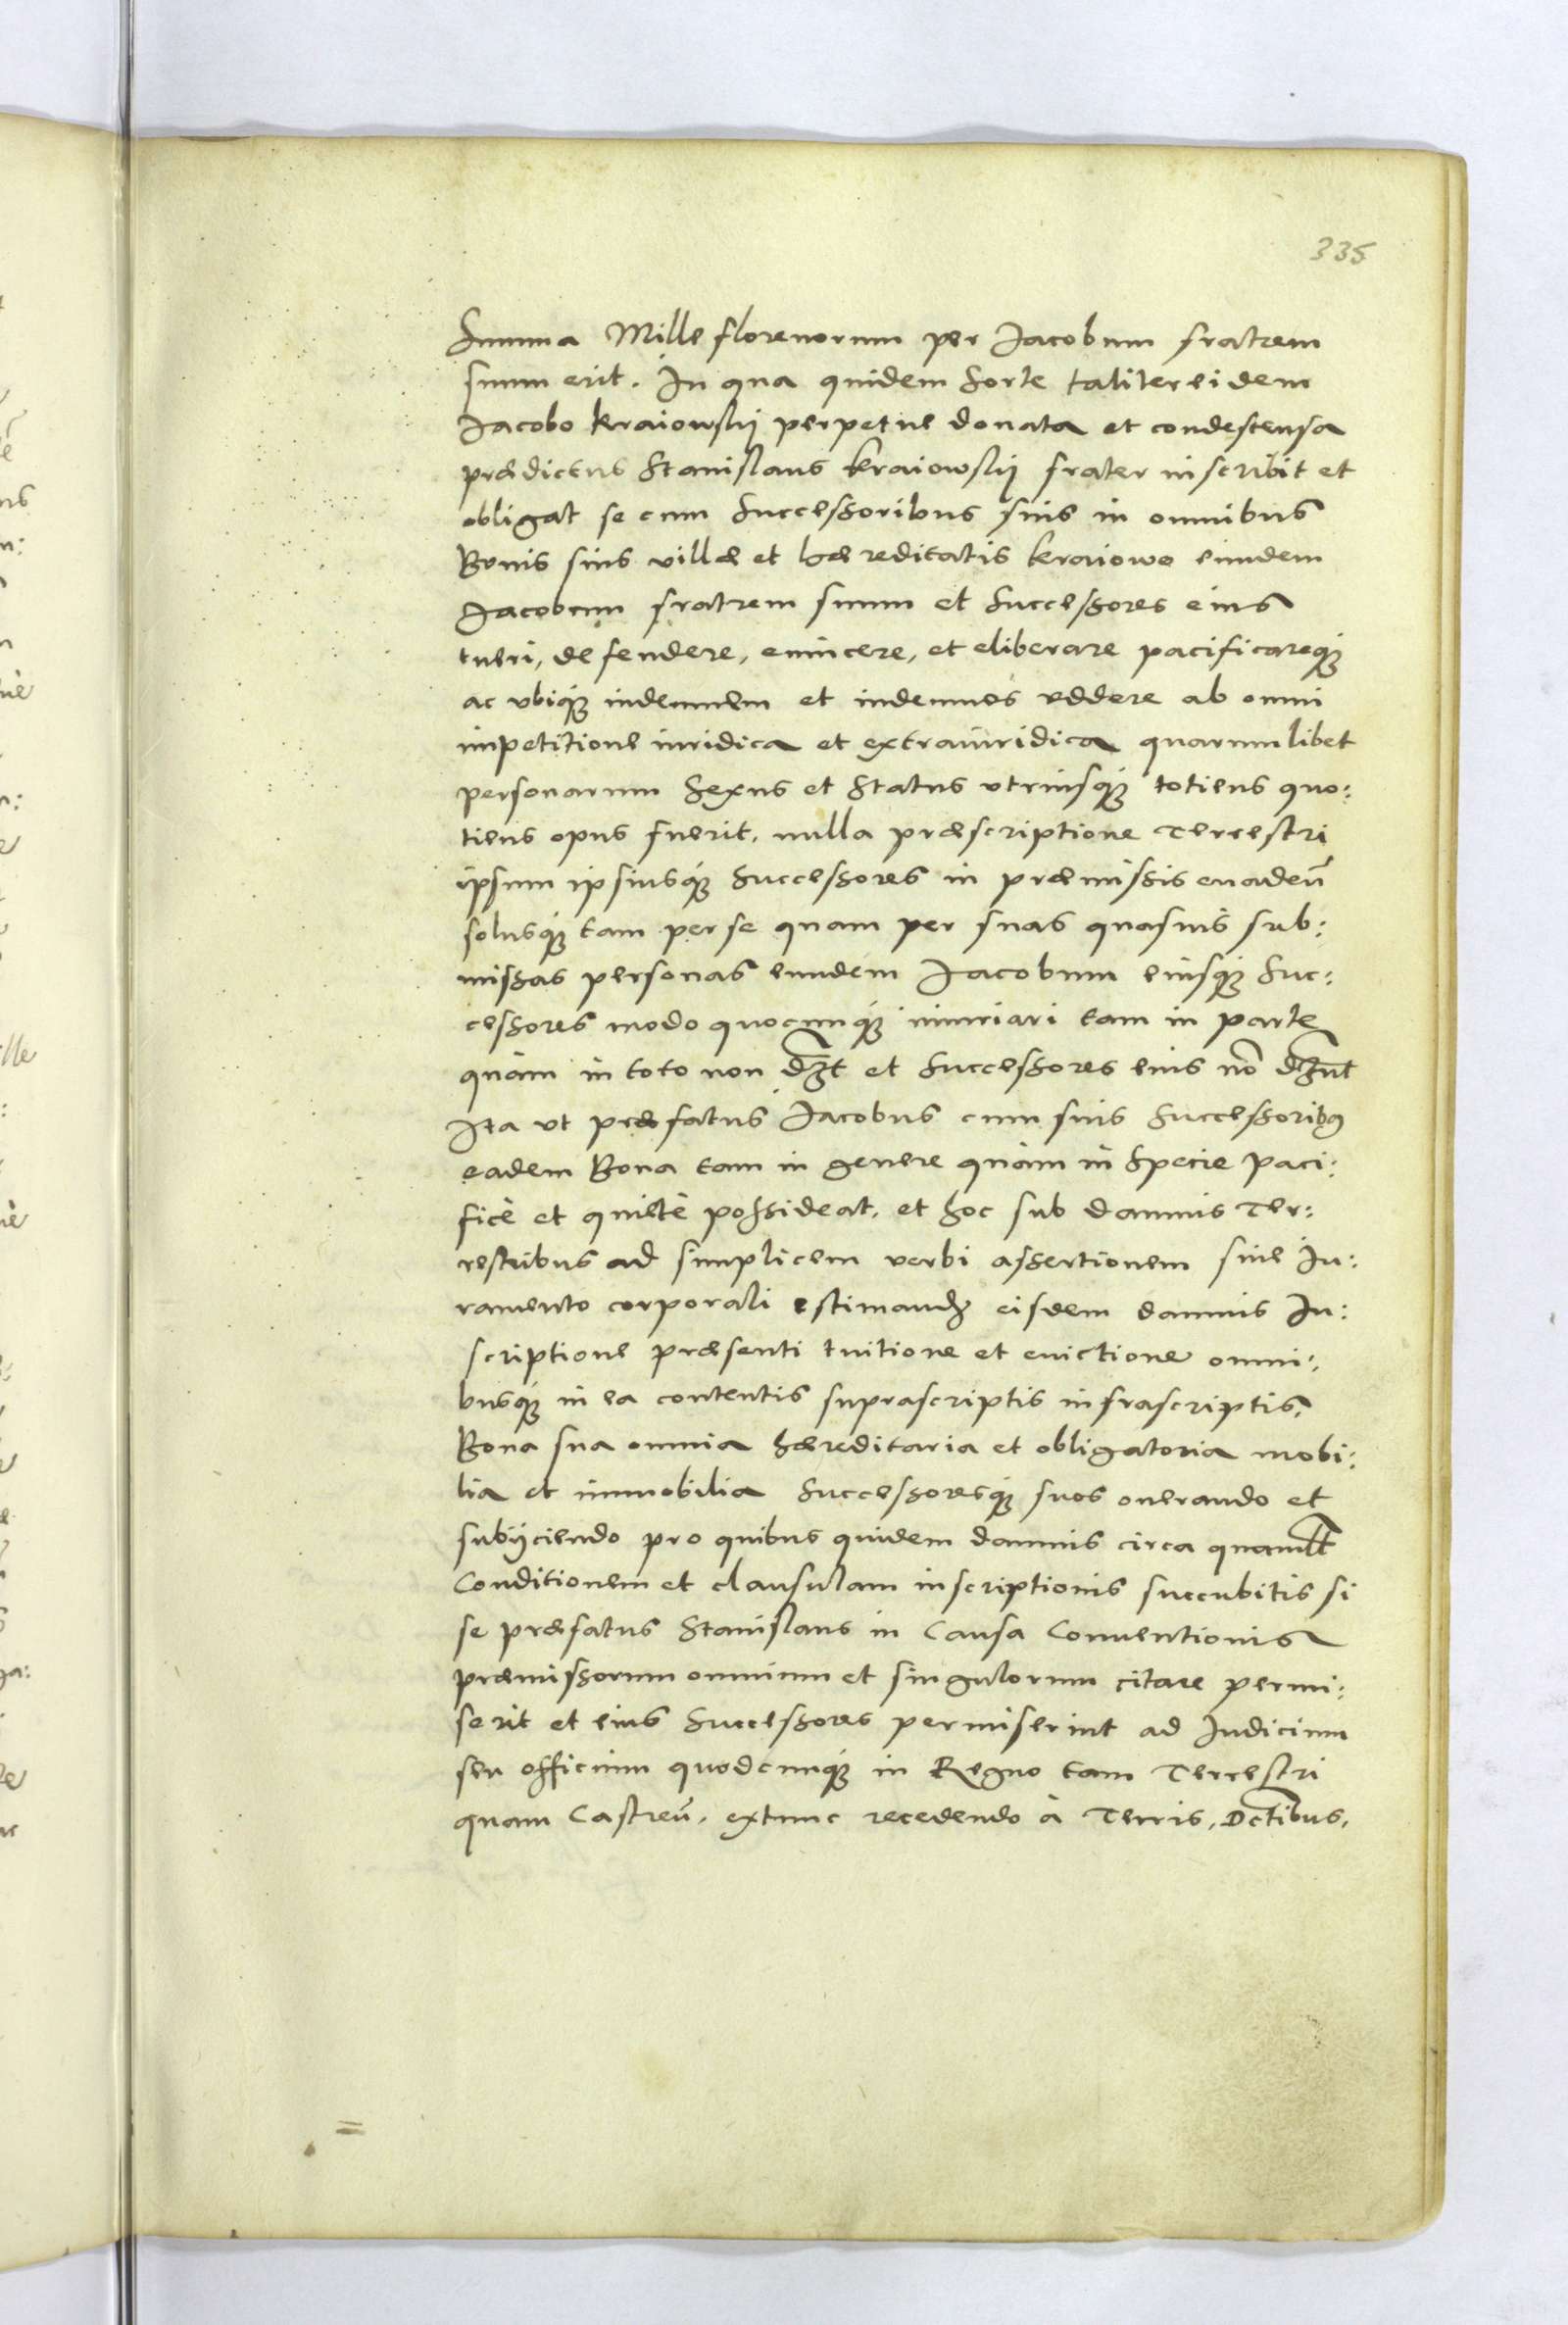 335
Summa Mille florenorum per Jacobum fratrem
suum erit. In qua quidem Sorte taliter eidem
Jacobo Kraiowskÿ perpetue donata et condescensa
prædictus Stanislaus Kraiowskÿ frater inscribit et
obligat se cum Successoribus suis in omnibus
Bonis suis villæ et hæreditatis Kraiowo eundem
Jacobum fratrem suum et Successores eius
tueri, defendere, euincere, et eliberare pacificareq₃
ac vbiq₃ indemnem et indemnes reddere ab omni
impetitione iuridica et extraiuridica quarumlibet
personarum Sexus et Status vtriusq₃ totiens quo:
tiens opus fuerit. nulla præscriptione Terrestri
ipsum ipsiusq₃ Successores in præmissis euadeñ
solusq₃ tam per se quam per suas quasuis sub:
missas personas eundem Jacobum eiusq₃ Suc:
cessores modo quocunq₃ iniuriari tam in parte
quàm in toto non dꝫt et Successores eius nõ dꝫnt
Ita vt præfatus Jacobus cum suis Successoribꝰ
eadem Bona tam in genere quàm in Specie paci:
ficè et quietè possideat. et hoc sub damnis Ter:
restribus ad simplicem verbi assertionem siue Iu:
ramento corporali estimandꝫ eisdem damnis In:
scriptione præsenti tuitione et euictione omni:
busq₃ in ea contentis suprascriptis infrascriptis.
Bona sua omnia hæreditaria et obligatoria mobi:
lia et immobilia Successoresq₃ suos onerando et
subÿciendo pro quibus quidem damnis circa quamlt
Conditionem et clausulam inscriptionis succubitis si
se præfatus Stanislaus in Causa Conuentionis
præmissorum omnium et singulorum citare permi:
serit et eius Successores permiserint ad Iudicium
seu officium quodcunq₃ in Regno tam Terrestri
quam Castreñ. extunc recedendo à Terris, Dctibus.